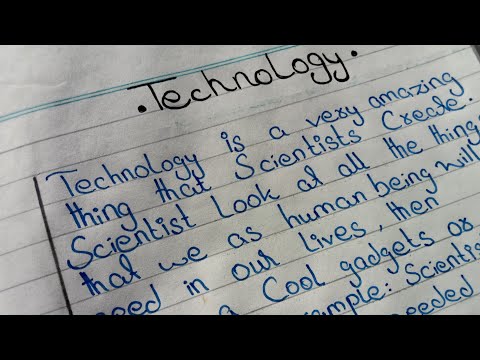 • Technology •
Technology is a very amazing
thing that Scientists Create.
Scientist Look at all the thing
that we as human being will
need in our lives, then
a Cool gadgets or
ample: Scientis
needed